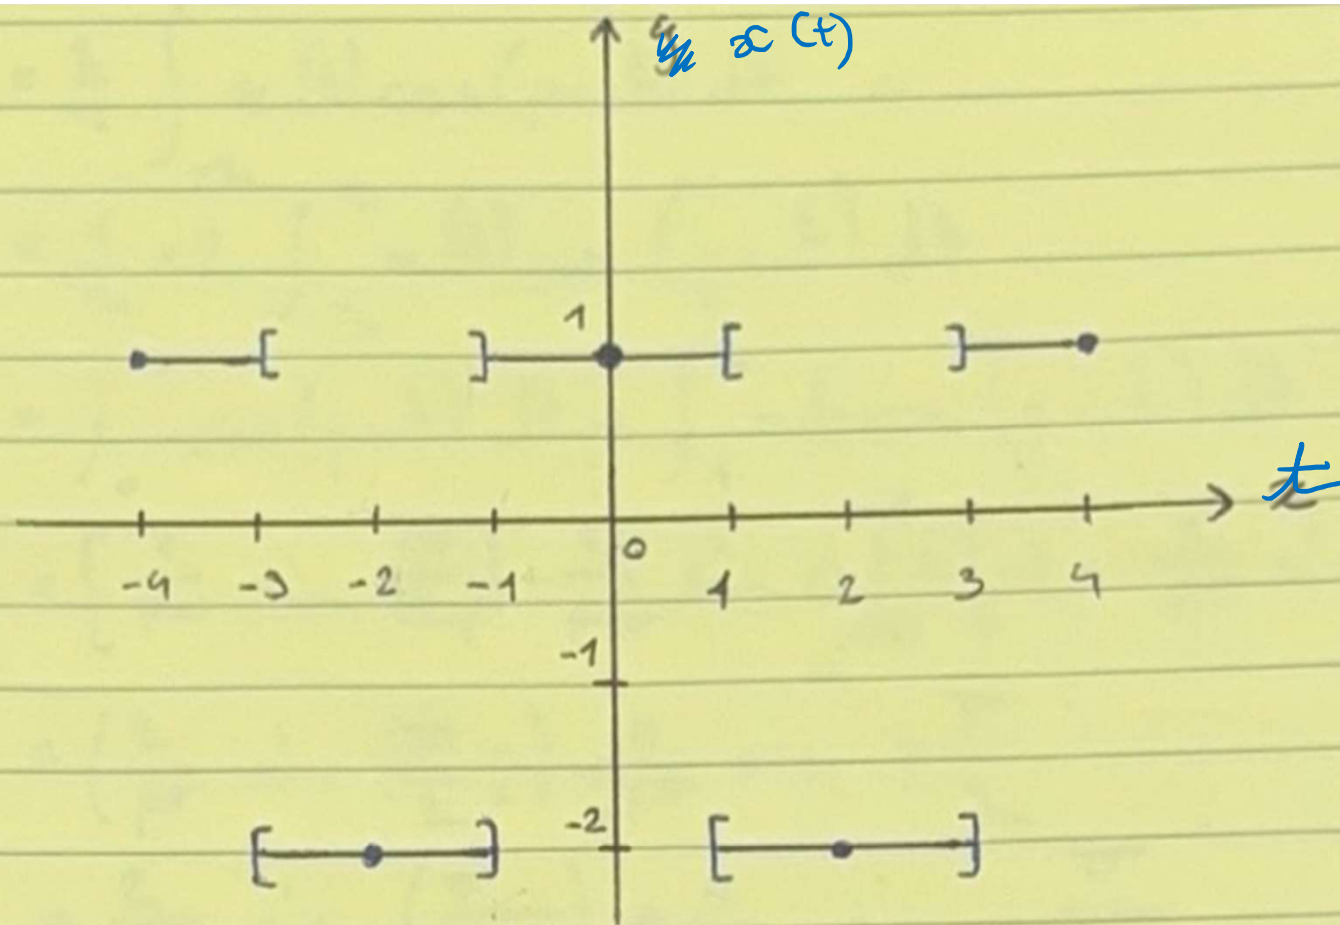 x (t)
1
t
0
-4 -3 -2 -1 1 2 3 4
-1
-2